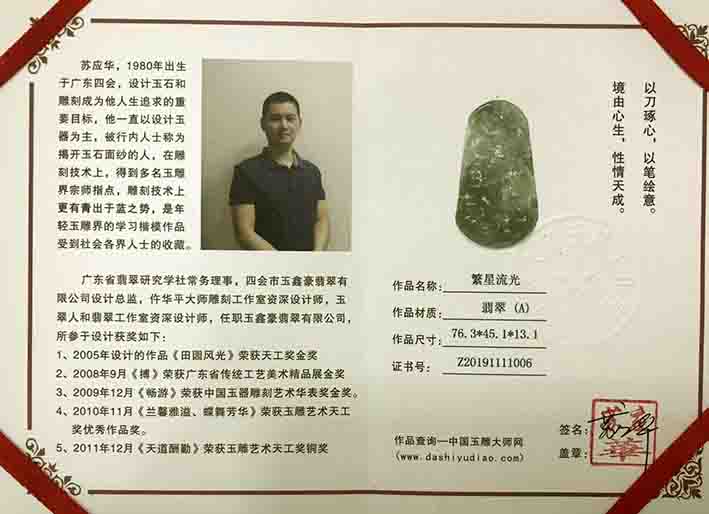 苏应华，1980年出生
于广东四会，设计玉石和
雕刻成为他人生追求的重
要目标，他一直以设计玉
器为主，被行内人士称为
揭开玉石面纱的人，在雕
刻技术上，得到多名玉雕
界宗师指点，雕刻技术上
更有青出于蓝之势，是年
轻玉雕界的学习描模作品
受到社会各界人士的收藏。
广东省翡翠研究学社常务理事，四会市玉鑫豪翡翠有
限公司设计总监，仵华平大师雕刻工作室资深设计师，玉
翠人和翡翠工作室资深设计师，任职玉鑫豪翡翠有限公司，
所参于设计获奖如下：
1、2005年设计的作品《田园风光》荣获天工奖金奖
2、2008年9月《搏》荣获广东省传统工艺美术精品展金奖
3、2009年12月《畅游》荣获中国玉器雕刻艺术华表奖金奖。
4、2010年11月《兰馨雅溢、蝶舞芳华》荣获玉雕艺术天工
奖优秀作品奖。
5、2011年12月《天道酬勤》荣获玉雕艺术天工奖铜奖
以刀琢心，以笔绘意。
境由心生，性情天成。
作品名称：繁星流光
作品材质：翡翠 (A)
作品尺寸：76.3*45.1*13.1
证书号：Z20191111006
作品查询—中国玉雕大师网
(www.dashiyudiao.com)
签名：
盖章：